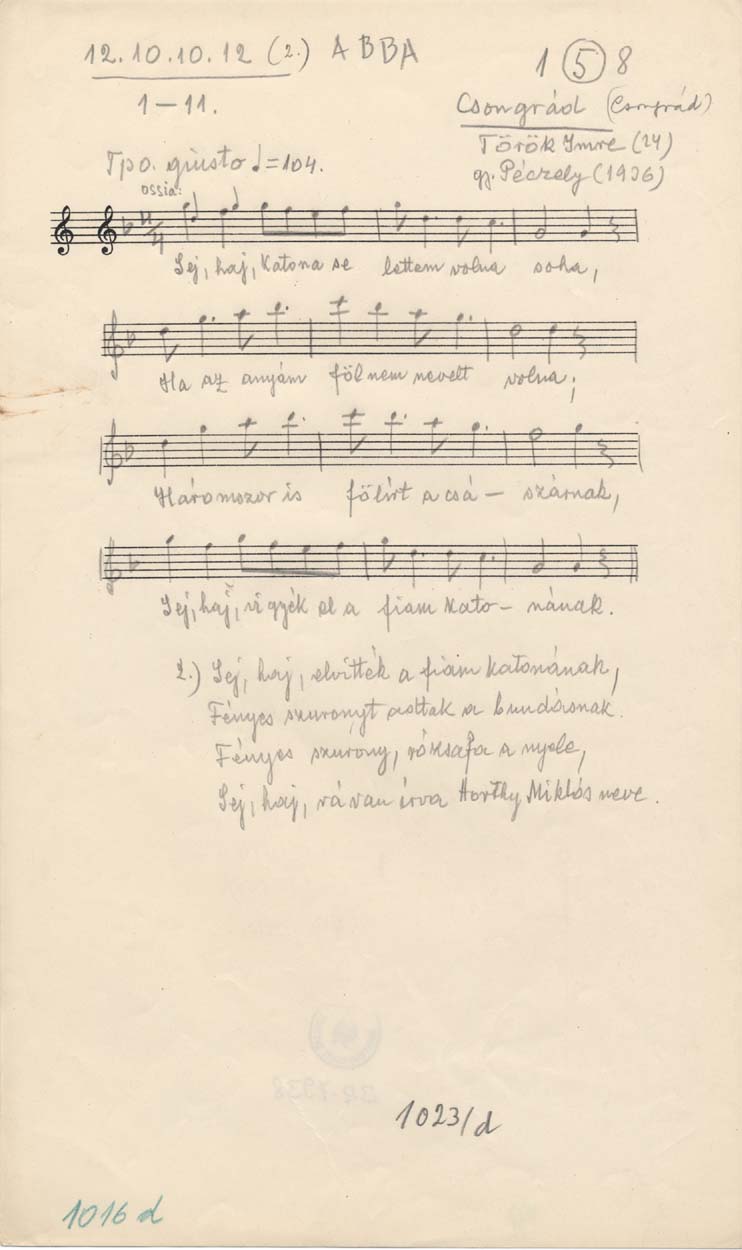 12.10.10.12 (2.) A B B A
1 5 8
1-11.
Csongrád (Csongrád)
Török Imre (24)
gy. Péczely (1936)
Tpo. giusto ♩=104.
ossia:
Sej, haj, katona se lettem volna soha,
Ha az anyám föl nem nevelt volna;
Háromszor is fölírt a csá - szárnak,
Sej, haj, vigyék el a fiam kato - nának.
2.) Sej, haj, elvitték a fiam katonának,
Fényes szuronyt adtak a bundásnak.
Fényes szurony, rózsafa a nyele,
Sej, haj, rá van írva Horthy Miklós neve.
1023/d
1016 d